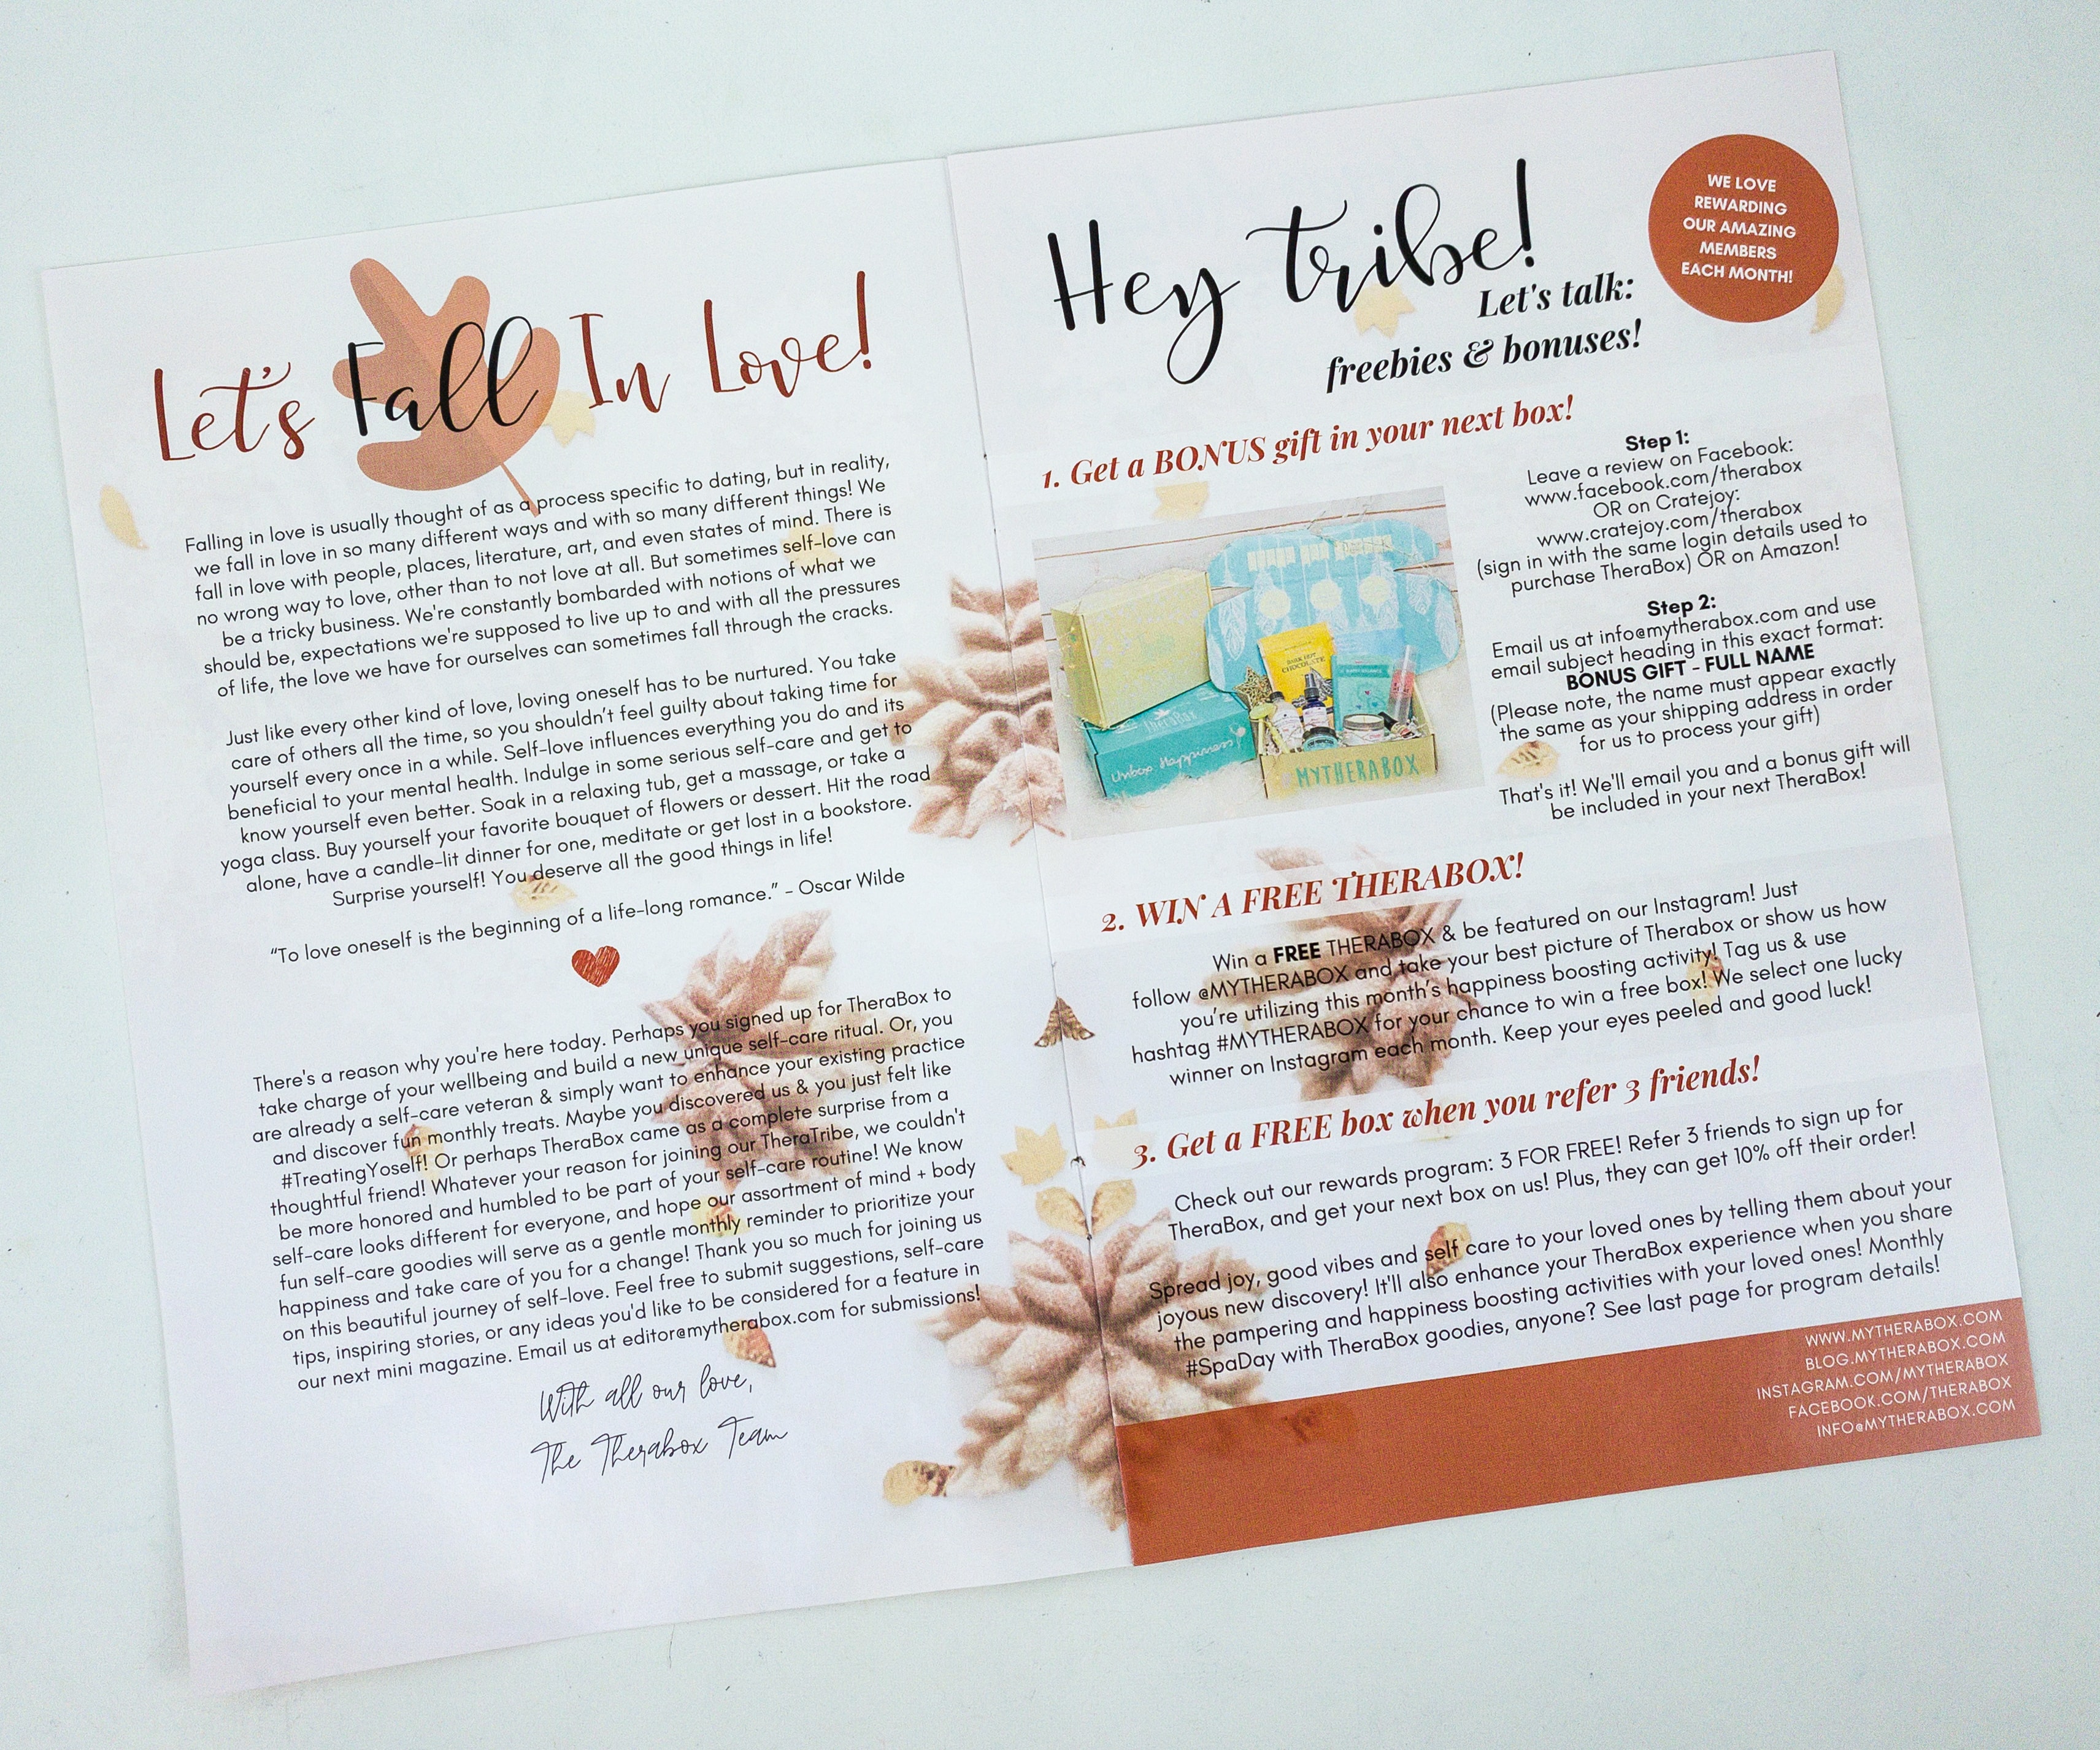 Let's Fall In Love!
Falling in love is usually thought of as a process specific to dating, but in reality,
we fall in love in so many different ways and with so many different things! We
fall in love with people, places, literature, art, and even states of mind. There is
no wrong way to love, other than to not love at all. But sometimes self-love can
be a tricky business. We're constantly bombarded with notions of what we
should be, expectations we're supposed to live up to and with all the pressures
of life, the love we have for ourselves can sometimes fall through the cracks.
Just like every other kind of love, loving oneself has to be nurtured. You take
care of others all the time, so you shouldn't feel guilty about taking time for
yourself every once in a while. Self-love influences everything you do and its
beneficial to your mental health. Indulge in some serious self-care and get to
know yourself even better. Soak in a relaxing tub, get a massage, or take a
yoga class. Buy yourself your favorite bouquet of flowers or dessert. Hit the road
alone, have a candle-lit dinner for one, meditate or get lost in a bookstore.
Surprise yourself! You deserve all the good things in life!
“To love oneself is the beginning of a life-long romance.” - Oscar Wilde
There's a reason why you're here today. Perhaps you signed up for TheraBox to
take charge of your wellbeing and build a new unique self-care ritual. Or, you
are already a self-care veteran & simply want to enhance your existing practice
and discover fun monthly treats. Maybe you discovered us & you just felt like
#TreatingYoself! Or perhaps TheraBox came as a complete surprise from a
thoughtful friend! Whatever your reason for joining our TheraTribe, we couldn't
be more honored and humbled to be part of your self-care routine! We know
self-care looks different for everyone, and hope our assortment of mind + body
fun self-care goodies will serve as a gentle monthly reminder to prioritize your
happiness and take care of you for a change! Thank you so much for joining us
on this beautiful journey of self-love. Feel free to submit suggestions, self-care
tips, inspiring stories, or any ideas you'd like to be considered for a feature in
our next mini magazine. Email us at editor@mytherabox.com for submissions!
With all our love,
The Therabox Team
Hey tribe!
Let's talk:
freebies & bonuses!
WE LOVE
REWARDING
OUR AMAZING
MEMBERS
EACH MONTH!
1. Get a BONUS gift in your next box!
DARK HOT
CHOCOLATE
TheraBox
Unbox Happiness
MYTHERABOX
Step 1:
Leave a review on Facebook:
www.facebook.com/therabox
OR on Cratejoy:
www.cratejoy.com/therabox
(sign in with the same login details used to
purchase TheraBox) OR on Amazon!
Step 2:
Email us at info@mytherabox.com and use
email subject heading in this exact format:
BONUS GIFT - FULL NAME
(Please note, the name must appear exactly
the same as your shipping address in order
for us to process your gift)
That's it! We'll email you and a bonus gift will
be included in your next TheraBox!
2. WIN A FREE THERABOX!
Win a FREE THERABOX & be featured on our Instagram! Just
follow @MYTHERABOX and take your best picture of Therabox or show us how
you're utilizing this month's happiness boosting activity! Tag us & use
hashtag #MYTHERABOX for your chance to win a free box! We select one lucky
winner on Instagram each month. Keep your eyes peeled and good luck!
3. Get a FREE box when you refer 3 friends!
Check out our rewards program: 3 FOR FREE! Refer 3 friends to sign up for
TheraBox, and get your next box on us! Plus, they can get 10% off their order!
Spread joy, good vibes and self care to your loved ones by telling them about your
joyous new discovery! It'll also enhance your TheraBox experience when you share
the pampering and happiness boosting activities with your loved ones! Monthly
#SpaDay with TheraBox goodies, anyone? See last page for program details!
WWW.MYTHERABOX.COM
BLOG.MYTHERABOX.COM
INSTAGRAM.COM/MYTHERABOX
FACEBOOK.COM/THERABOX
INFO@MYTHERABOX.COM